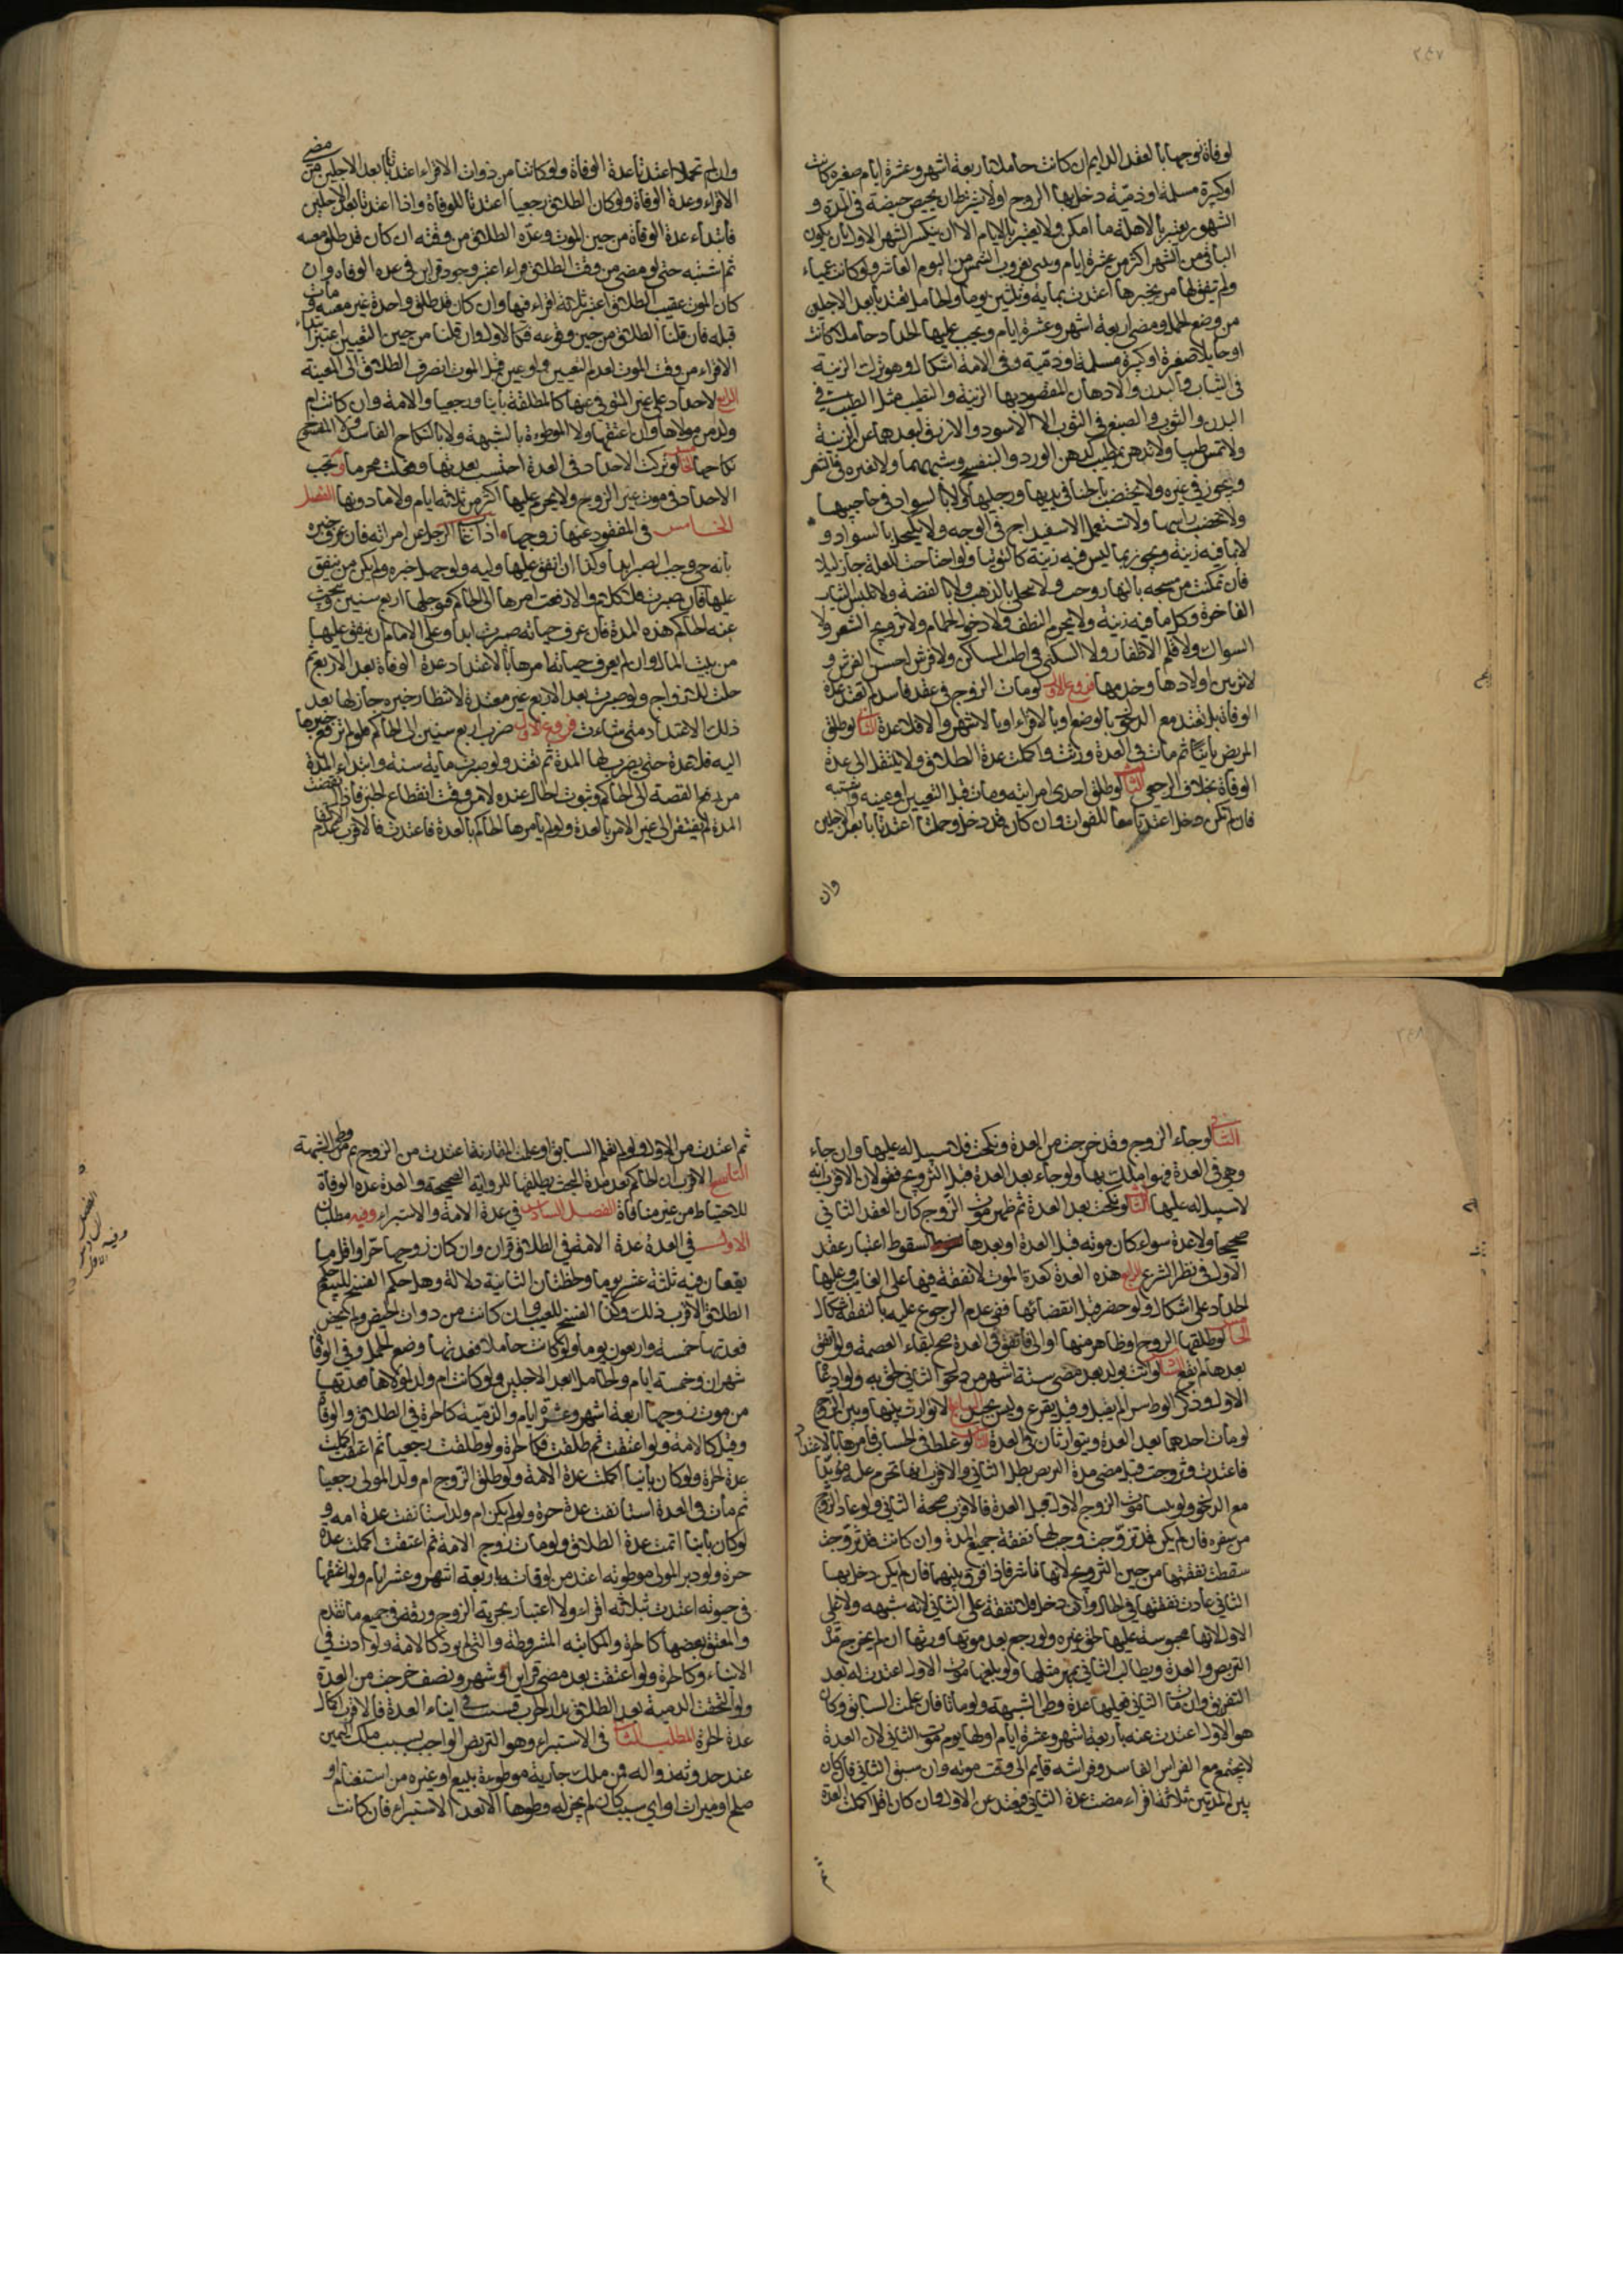 ٢٤٧
لوفاة زوجها بالعقد الدايم ان كانت حايلا باربعة اشهر وعشرة ايام صغيرة كانت
او كبيرة مسلمة او ذمية دخل بها الزوج او لا ولا يشترط ان تحيض حيضة في المدة و
الشهور يعتبر بالاهلة ما امكن ولا يعتبر بالايام الا ان ينكسر الشهر الاول بان يكون
الباقي من الشهر اكثر من عشرة ايام ويبين بغروب الشمس من اليوم العاشر ولو كانت عمياء
ولم يتفق لها من يخبرها اعتدت بماية وثلثين يوما والحامل تعتد بابعد الاجلين
من وضع الحمل ومضي اربعة اشهر وعشرة ايام ويجب عليها الحداد حاملا كانت
او حايلا صغيرة او كبيرة مسلمة او ذمية وفي الامة اشكال وهو ترك الزينة
في الثياب والبدن والادهان المقصود بها الزينة والتطيب مثل الطيب في
البدن والثوب والصبغ في الثوب الا الاسود والازرق لبعدهما عن الزينة
ولا تمس طيبا ولا تدهن بمطيب كدهن الورد والبنفسج وشبههما ولا بغيره في الشعر
ويجوز في غيره ولا تختضب بالحنا في يديها ورجليها ولا بالسواد في حاجبيها
ولا تخضب راسها ولا تستعمل الاسفيداج في الوجه ولا تكتحل بالسواد و
لا بما فيه زينة ويجوز بما ليس فيه زينة كالتوتيا ولو احتاجت للعلة جاز ليلا
فان تمكنت من مسحه بالنهار وجب ولا تتحلى بالذهب ولا بالفضة ولا تلبس الثياب
الفاخرة وكل ما فيه زينة ولا يحرم التنظف ولا دخول الحمام ولا تسريح الشعر ولا
السواك ولا قلم الاظفار ولا السكنى في اطيب المساكن ولا فرش احسن الفرش و
لا تزيين اولادها وخدمها فروع الاول لو مات الزوج في عقد فاسد لم تعتد عدة
الوفاة بل تعتد مع الدخول بالوضع او بالاقراء او بالاشهر والا فلا عدة الثاني لو طلق
المريض باينا ثم مات في العدة ورثت واكملت عدة الطلاق ولا ينتقل الى عدة
الوفاة بخلاف الرجعي الثالث لو طلق احدى امراتيه ومات قبل التعيين او عينه واشتبه
فان لم يكن دخل اعتدتا معا للوفاة وان كان قد دخل وحملتا اعتدتا بابعد الاجلين
وان
وان لم تحملا اعتدتا عدة الوفاة ولو كانتا من ذوات الاقراء اعتدتا بابعد الاجلين من مضي
الاقراء وعدة الوفاة ولو كان الطلاق رجعيا اعتدتا للوفاة واذا اعتدتا بابعد الاجلين
فابتداء عدة الوفاة من حين الموت وعدة الطلاق من وقته ان كان قد طلق معينه
ثم اشتبه حتى لو مضى من وقت الطلاق قراءا اعتبر وجود قراين في عدة الوفاه وان
كان الموت عقيب الطلاق اعتبر ثلاثة اقراء فيها وان كان قد طلق واحدة غير معينه ومات
قبله فان قلنا الطلاق من حين وقوعه فكالاول وان قلنا من حين التعيين اعتبر ابتداء
الاقراء من وقت الموت لعدم التعيين ولو عين قبل الموت انصرف الطلاق الى المعينة
الرابع لا حداد على غير المتوفى عنها كالمطلقة باينا ورجعيا والامة وان كانت ام
ولد من مولاها وان اعتقها ولا الموطوءة بالشبهة ولا بالنكاح الفاسد ولا المنفسخ
نكاحها الخامس لو تركت الاحداد في العدة احتسب بعدتها وفعلت محرما ولا يجب
الاحداد في موت غير الزوج ولا يحرم عليها اكثر من ثلاثة ايام ولا ما دونها الفصل
الخامس في المفقود عنها زوجها اذا غاب الرجل عن امراته فان عرف خبره
بانه حي وجب الصبر ابدا وكذا ان انفق عليها وليه ولو جهل خبره ولم يكن من ينفق
عليها فان صبرت فلا كلام والا رفعت امرها الى الحاكم فيؤجلها اربع سنين يبحث
عنه الحاكم هذه المدة فان عرف حياته صبرت ابدا وعلى الامام ان ينفق عليها
من بيت المال وان لم يعرف حياته امرها بالاعتداد عدة الوفاة بعد الاربع ثم
حلت للازواج ولو صبرت بعد الاربع غير معتدة لانتظار خبره جاز لها بعد
ذلك الاعتداد متى شاءت فروع الاول ضرب اربع سنين الى الحاكم فلو لم ترفع خبرها
اليه فلا عدة حتى يضرب لها المدة ثم تعتد ولو صبرت ماية سنة وابتداء المدة
من رفع القصة الى الحاكم وثبوت الحال عنده لا من وقت انقطاع الخبر فاذا انقضت
المدة لم يفتقر الى غير الامر بالعدة ولو لم يامرها الحاكم بالعدة فاعتدت فالاقرب عدم الاكتفا
٢٤٨
الثاني لو جاء الزوج وقد خرجت من العدة ونكحت فلا سبيل له عليها وان جاء
وهي في العدة فهو املك بها ولو جاء بعد العدة قبل التزويج فقولان الاقرب انه
لا سبيل له عليها الثالث لو نكحت بعد العدة ثم ظهر موت الزوج كان العقد الثاني
صحيحا ولا عدة سواء كان موته قبل العدة او بعدها لسقوط اعتبار عقد
الاول في نظر الشرع الرابع هذه العدة كعدة الموت لا نفقة فيها على الغايب وعليها
الحداد على اشكال ولو حضر قبل انقضائها ففي عدم الرجوع عليه بالنفقة اشكال
الخامس لو طلقها الزوج او ظاهر منها او الى فاتفق في العدة صح لبقاء العصمة ولو اتفق
بعدها لم يقع السادس لو اتت بولد بعد مضي ستة اشهر من دخول الثاني لحق به ولو ادعاه
الاول وذكر الوطي سرا لم يقبل وقيل يقرع وليس بجيد السابع لا توارث بينها وبين الزوج
لو مات احدهما بعد العدة ويتوارثان في العدة الثامن لو غلط في الحساب فامرها بالاعتداد
فاعتدت وتزوجت قبل مضي مدة التربص بطل الثاني والاقرب انها تحرم عليه مؤبدا
مع الدخول ولو بان موت الزوج الاول قبل العدة فالاقرب صحة الثاني ولو عاد الزوج
من سفره فان لم يكن قد تزوجت وجب لها نفقة جميع المدة وان كانت قد تزوجت
سقطت نفقتها من حين التزويج لانها ناشز فاذا فرق بينهما فان لم يكن دخل بها
الثاني عادت نفقتها في الحال وان دخل فلا نفقة على الثاني لانه شبهه ولا على
الاول لانها محبوسة عليها لحق غيره ولو رجع بعد موتها ورثها ان لم يخرج مدة
التربص والعدة ويطالب الثاني بمهر مثلها ولو بلغها موت الاول اعتدت له بعد
التفريق وان مات الثاني فعليها عدة وطي الشبهة ولو ماتا فان علمت السابق وكان
هو الاول اعتدت عنه باربعة اشهر وعشرة ايام اولها يوم موت الثاني لان العدة
لا يجتمع مع الفراش الفاسد وفراشه قايم الى وقت موته وان سبق الثاني فان كان
بين المدتين ثلاثة اقراء مضت عدة الثاني وتعتد عن الاول وان كان اقل اكملت العدة
ثم اعتدت من الاول ولو لم تعلم السابق او علمت المقارنة اعتدت من الزوج ثم من وطي الشبهة
التاسع الاقرب ان الحاكم بعد مدة البحث يطلقها للرواية الصحيحة والعدة عدة الوفاة
للاحتياط من غير منافاة الفصل السادس في عدة الامة والاستبراء وفيه مطلبان
الاول في العدة عدة الامة في الطلاق قران وان كان زوجها حرا واقل ما
يقعان فيه ثلثة عشر يوما ولحظتان الثانية دلالة وهل حكم الفسخ للبيع حكم
الطلاق الاقرب ذلك وكذا الفسخ للعيب وان كانت من ذوات الحيض ولم تحض
فعدتها خمسة واربعون يوما ولو كانت حاملا فعدتها وضع الحمل وفي الوفاة
شهران وخمسة ايام والحامل ابعد الاجلين ولو كانت ام ولد لمولاها فعدتها
من موت زوجها اربعة اشهر وعشرة ايام والذمية كالحرة في الطلاق والوفاة
وقيل كالامة ولو اعتقت ثم طلقت فكالحرة ولو طلقت رجعيا ثم اعتقت اكملت
عدة الحرة ولو كان باينا اكملت عدة الامة ولو طلق الزوج ام ولد المولى رجعيا
ثم مات في العدة استانفت عدة حرة ولو لم يكن ام ولد استانفت عدة امة و
لو كان باينا اتمت عدة الطلاق ولو مات زوج الامة ثم اعتقت اكملت عدة
حرة ولو دبر المولى موطوته اعتد من وفاته باربعة اشهر وعشر ايام ولو اعتقها
في حيوته اعتدت بثلاثه اقراء ولا اعتبار بحرية الزوج ورقه في جميع ما تقدم
والمعتق بعضها كالحرة والمكاتبه المشروطة والتي لم يود كالامة ولو ادت في
الاثناء فكالحرة ولو اعتقت بعد مضي قراين او شهر ونصف خرجت من العدة
ولو التحقت الذمية بعد الطلاق بدار الحرب فسبيت في اثناء العدة فالاقرب اكمال
عدة الحرة المطلب الثاني في الاستبراء وهو التربص الواجب بسبب ملك اليمين
عند حدوثه وزواله فمن ملك جارية موطوءة ببيع او غيره من استغنام او
صلح او ميراث او اي سبب كان لم يجز له وطوها الا بعد الاستبراء فان كانت